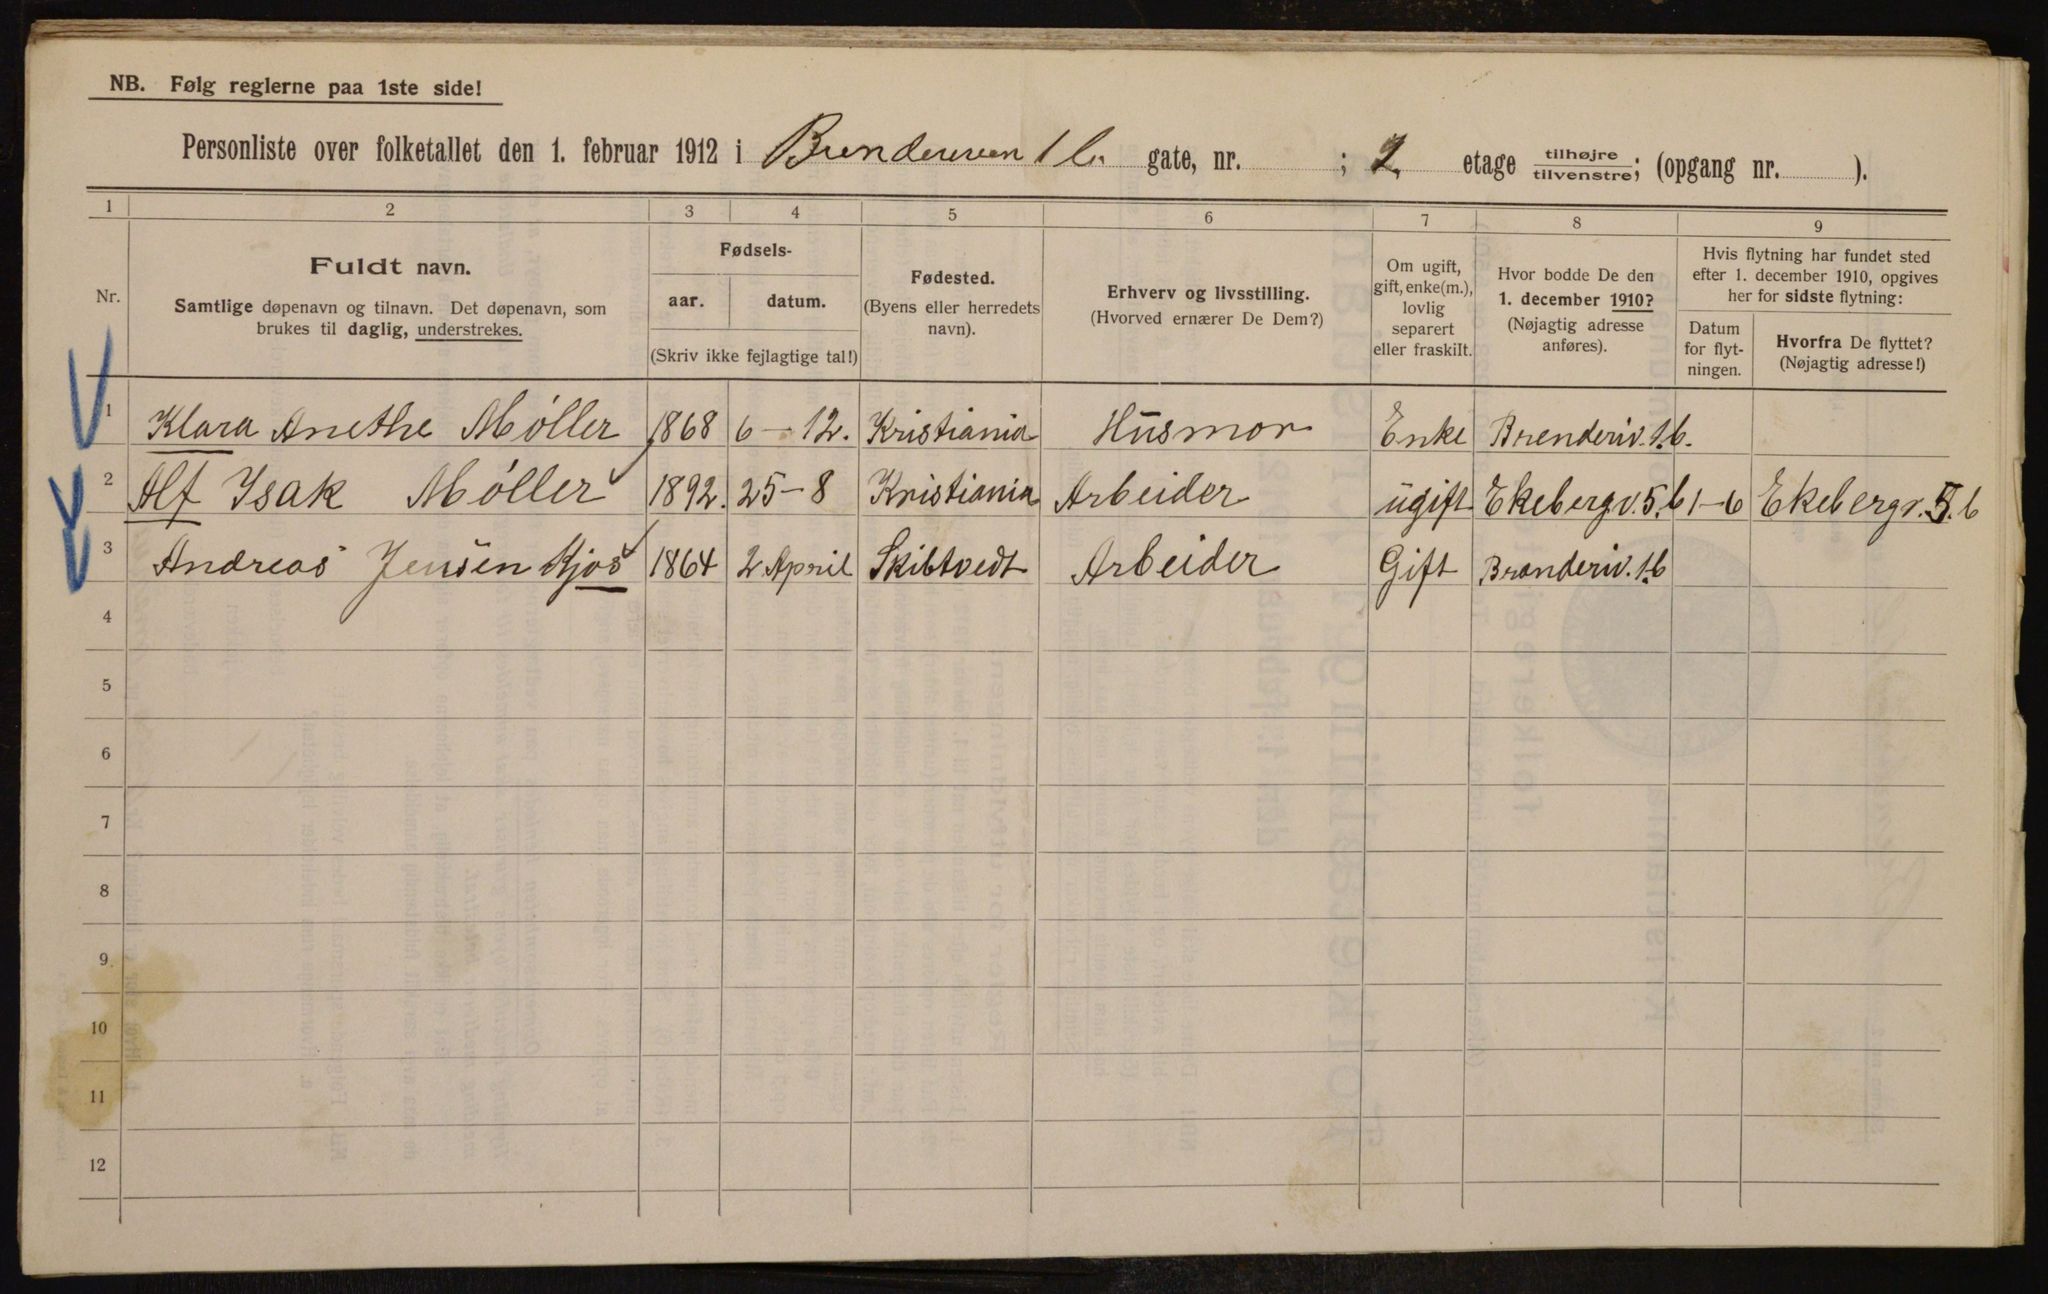 NB. Følg reglerne paa 1ste side!
Personliste over folketallet den 1. februar 1912 i 1 b. gate, nr. ; 2. etage tilhøjre tilvenstre; (opgang nr. ).
1 2 3 4 5 6 7 8 9
Nr.
Fuldt navn.
Samtlige døpenavn og tilnavn. Det døpenavn, som
brukes til daglig, understrekes.
Fødsels-
aar. datum.
(Skriv ikke fejlagtige tal!)
Fødested.
(Byens eller herredets
navn).
Erhverv og livsstilling.
(Hvorved ernærer De Dem?)
Om ugift,
gift, enke(m.),
lovlig
separert
eller fraskilt.
Hvor bodde De den
1. december 1910?
(Nøjagtig adresse
anføres).
Hvis flytning har fundet sted
efter 1. december 1910, opgives
her for sidste flytning:
Datum
for flyt-
ningen.
Hvorfra De flyttet?
(Nøjagtig adresse!)
1 Klara Anethe Møller 1868 6-12. Kristiania Husmor Enke Brenderiv. 1b.
2 Alf Isak Møller 1892. 25-8 Kristiania Arbeider ugift Ekebergv. 5.b 1-6 Ekebergv. 5.b
3 Andreas Jensen Kjos 1864 2 April Skibtvedt Arbeider Gift Branderiv. 1b
4
5
6
7
8
9
10
11
12